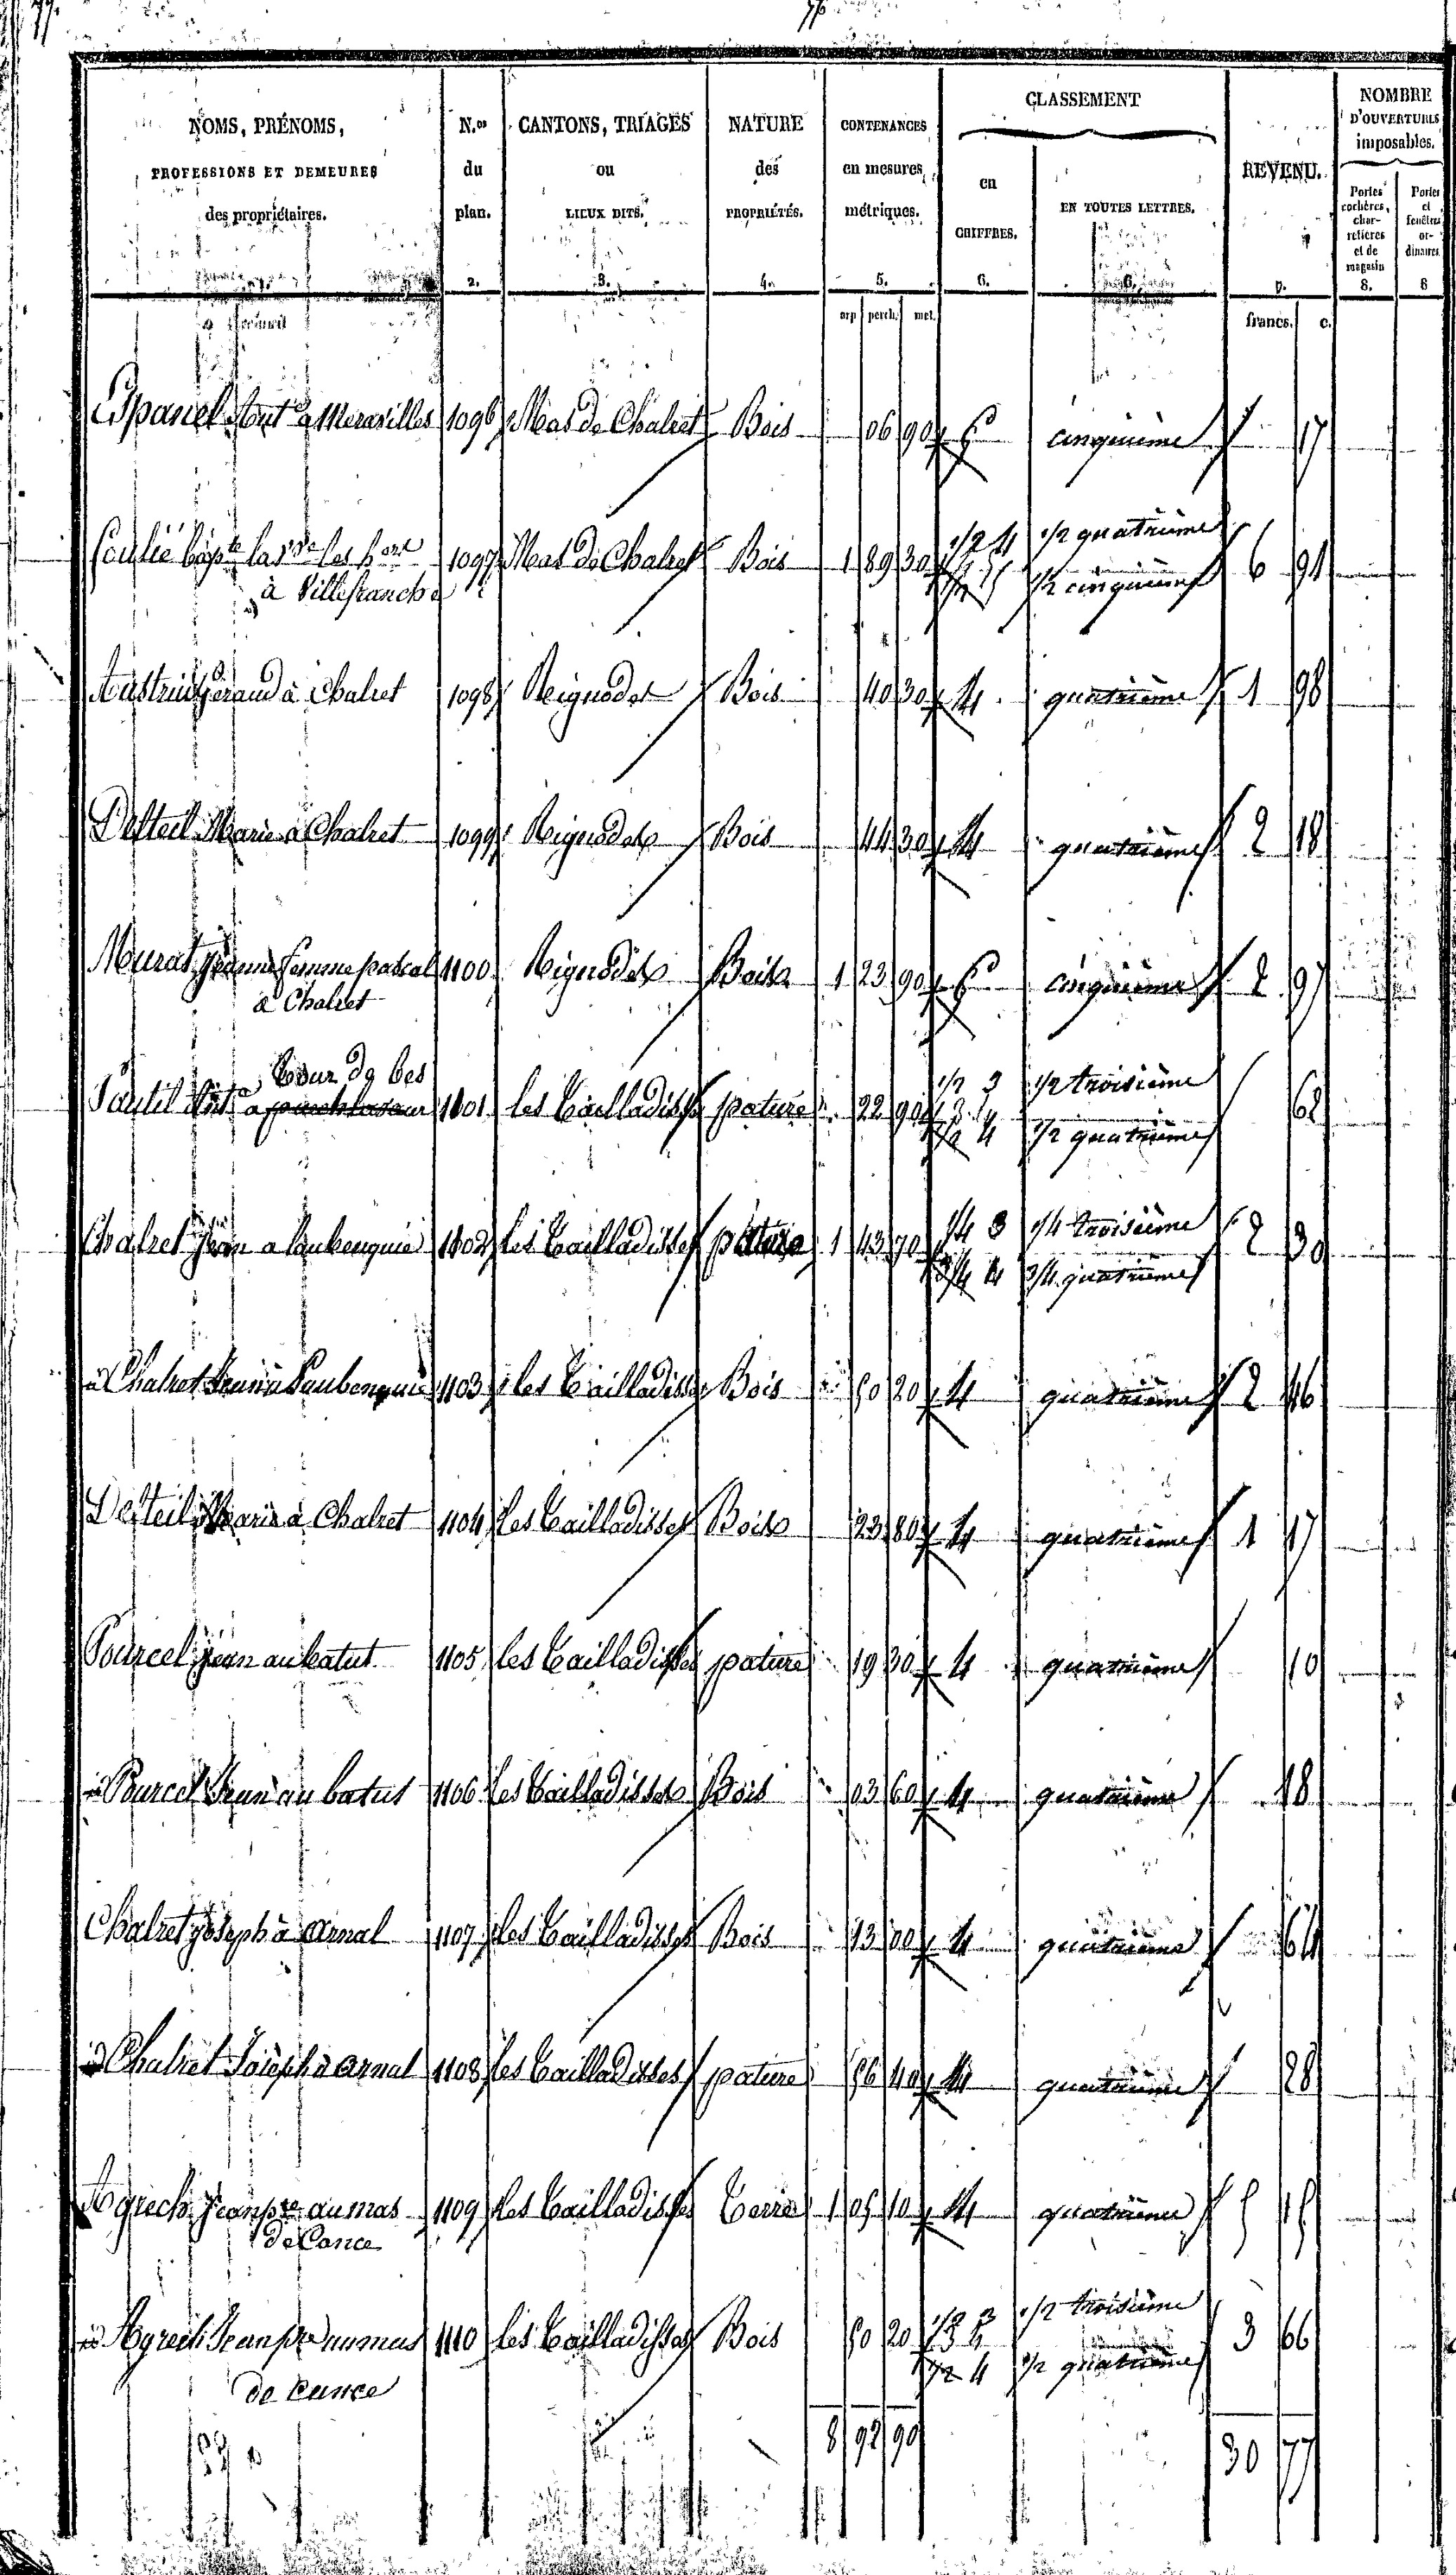 77.
NOMS, PRÉNOMS,
PROFESSIONS ET DEMEURES
des propriétaires.
N.os
du
plan.
2.
CANTONS, TRIAGES
ou
LIEUX DITS.
3.
NATURE
des
PROPRIÉTÉS.
4.
CONTENANCES
en mesures
métriques.
5.
arp. perch. met.
CLASSEMENT
en
CHIFFRES.
6.
EN TOUTES LETTRES.
6.
REVENU.
7.
francs. c.
NOMBRE
D'OUVERTURES
imposables.
Portes
cochères,
char-
retières
et de
magasin
8.
Portes
et
fenêtres
or-
dinaires
8
Espanel Ant.e à Meravilles 1096 Mas de Chalret Bois 06 90 5 cinquième 17
1/2 4 1/2 quatrième
Soulié bap.te la v.ve les h.ers 1097 Mas de Chalret Bois 1 89 30 1/2 5 1/2 cinquième 6 91
à Villefranche
Austruy géraud à Chalret 1098 Reignodes Bois 40 30 4 quatrième 1 98
Delteil Marie à Chalret 1099 Reignodes Bois 44 30 4 quatrième 2 18
Murat jeanne femme pascal 1100 Reignodes Bois 1 23 90 5 cinquième 2 97
à Chalret
Cour de bes 1/2 3 1/2 troisième
1101 les Cailladisses pature 22 90 1/2 4 1/2 quatrième 62
1/4 3 1/4 troisième
Chalret jean a laubenquié 1102 les Cailladisses pature 1 43 70 3/4 4 3/4 quatrième 2 30
Chalret Jean à Laubenquié 1103 les Cailladisses Bois 50 20 4 quatrième 2 46
Delteil Marie à Chalret 1104 les Cailladisses Bois 23 80 4 quatrième 1 17
Pourcel jean au batut 1105 les Cailladisses pature 19 30 4 quatrième 10
Pourcel Jean au batut 1106 les Cailladisses Bois 03 60 4 quatrième 18
Chalret joseph à arnal 1107 les Cailladisses Bois 13 00 4 quatrième 64
Chalret Joseph à arnal 1108 les Cailladisses pature 56 40 4 quatrième 28
Agrech Jean p.re au mas 1109 les Cailladisses Terre 1 05 10 4 quatrième 5 15
de Cance
1/2 3 1/2 troisième
Agrech Jean p.re au mas 1110 les Cailladisses Bois 50 20 1/2 4 1/2 quatrième 3 66
de Cance
8 92 90
30 77